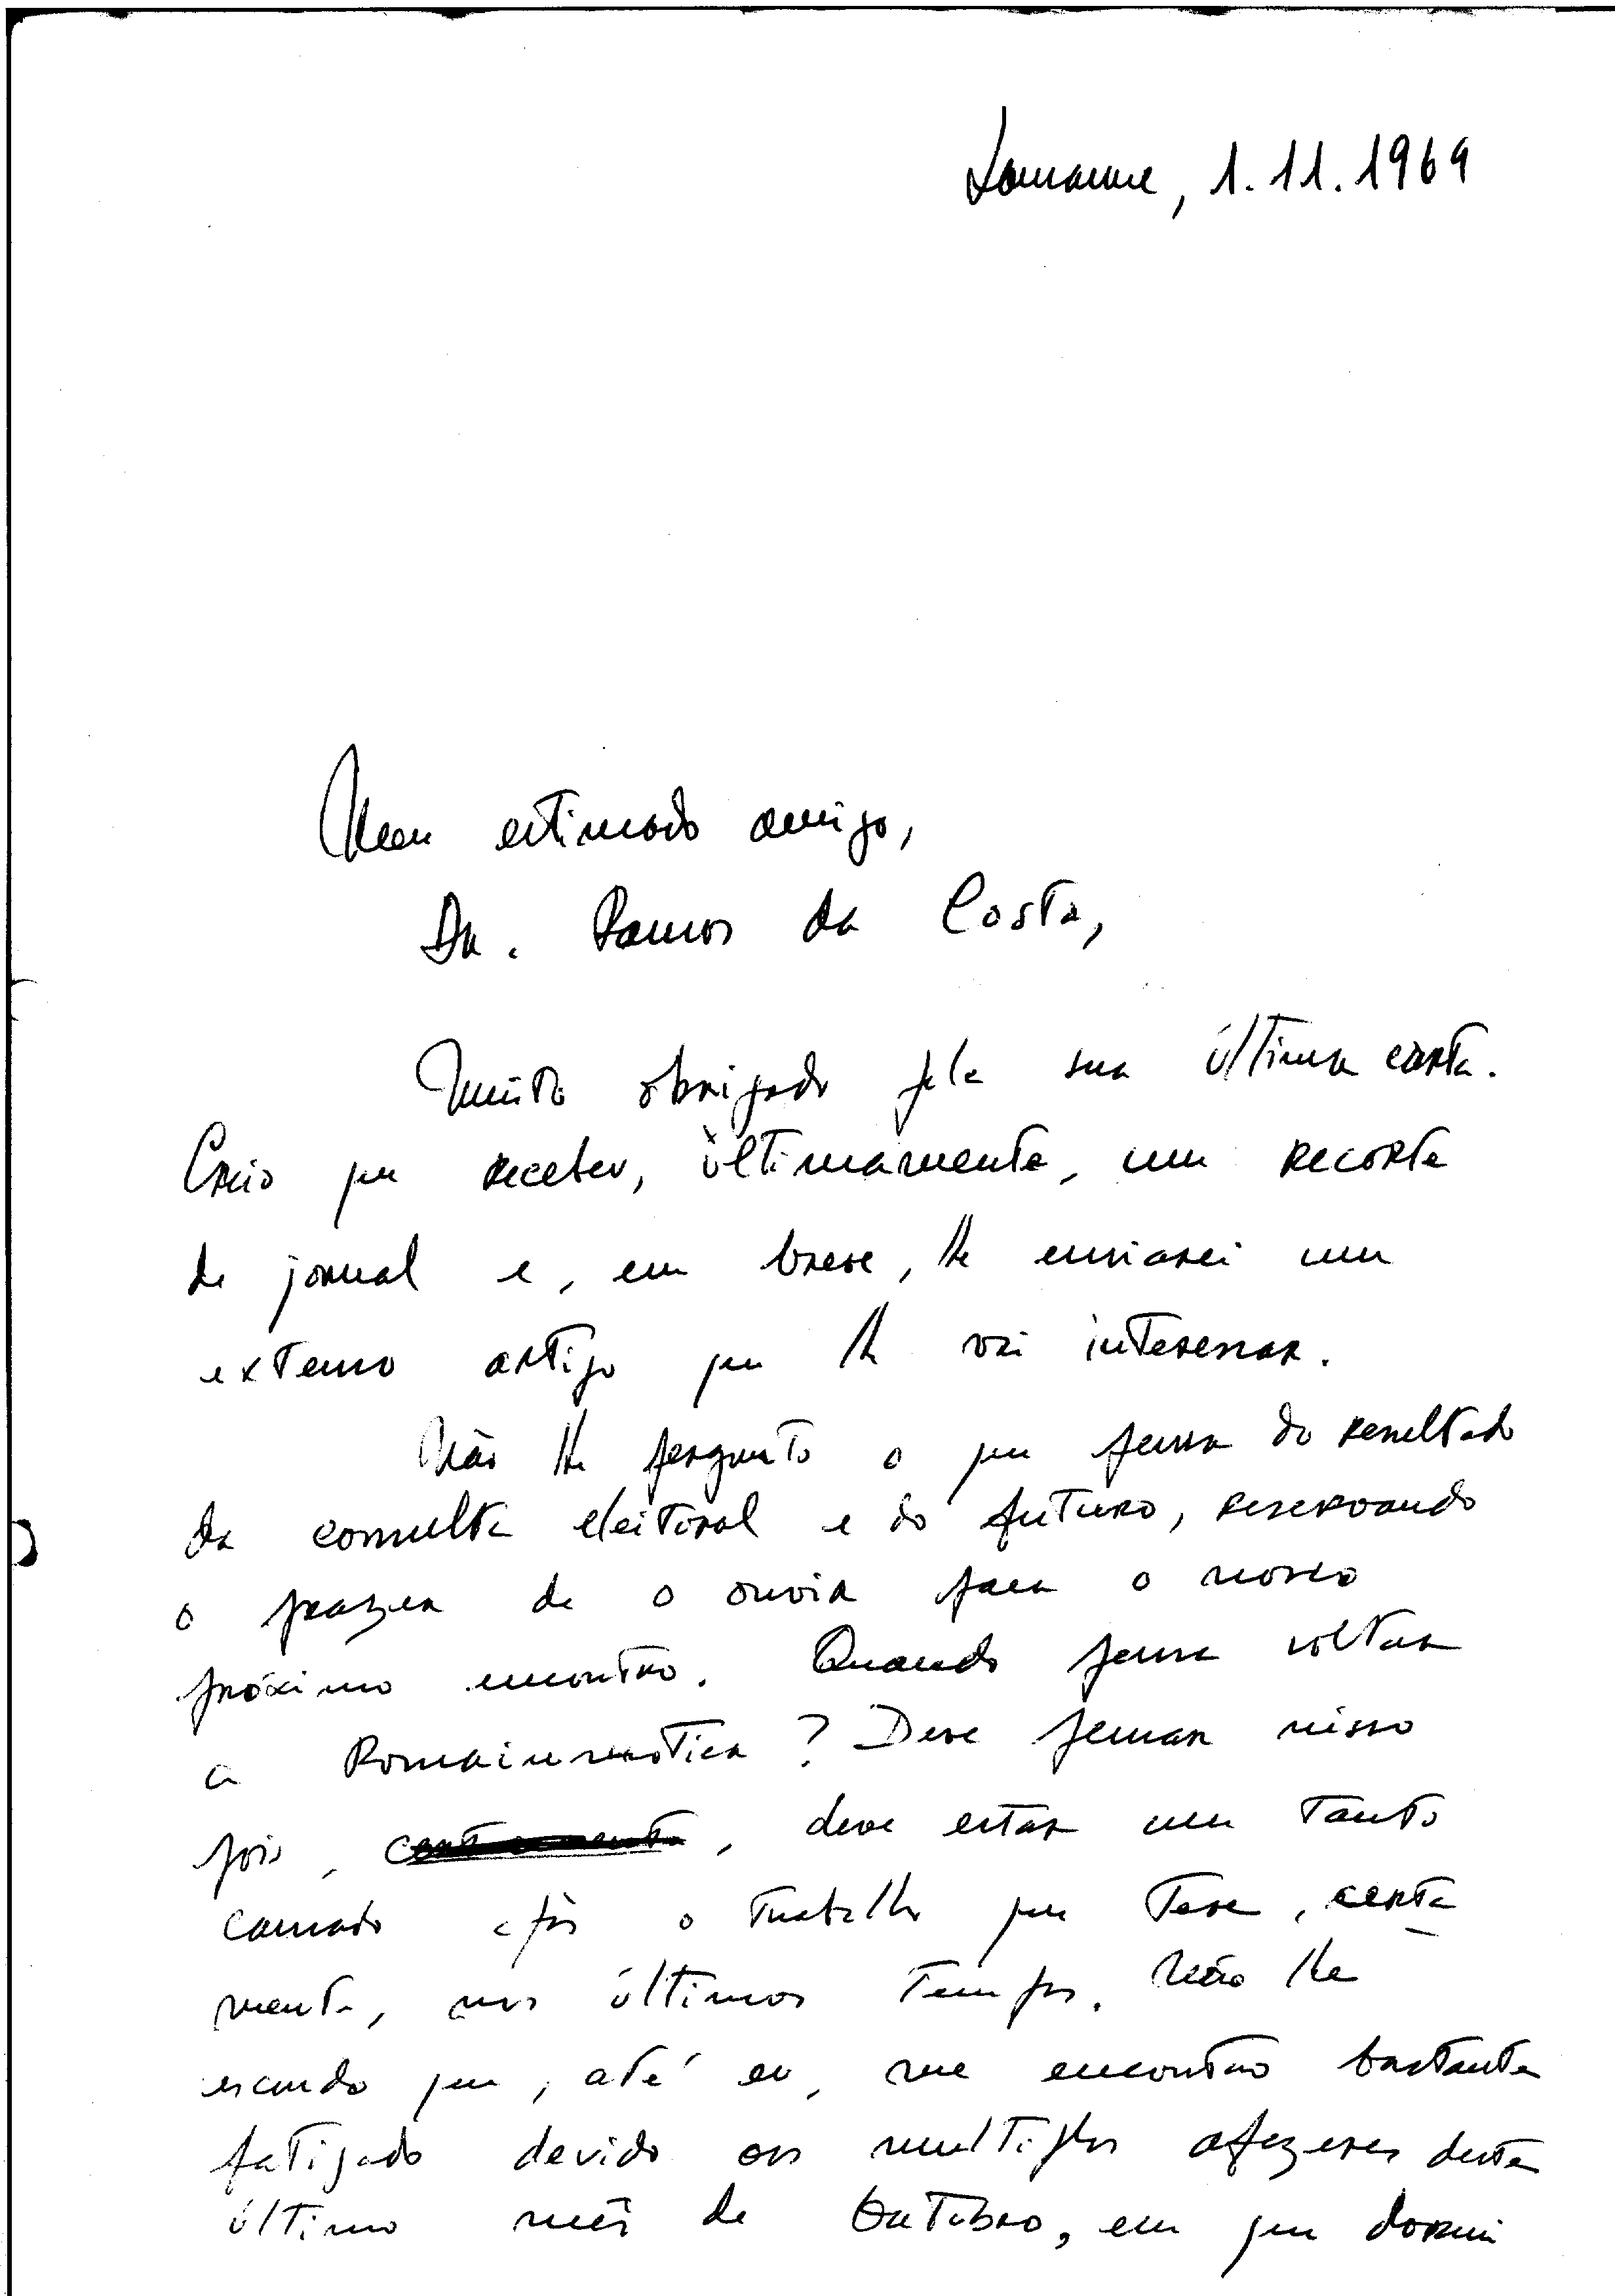 Lausanne, 1.11.1969
Meu estimado amigo,
Dr. Ramos da Costa,
Muito obrigado pela sua última carta.
Creio que recebeu, ùltimamente, um recorte
de jornal e, em breve, lhe enviarei um
extenso artigo que lhe vai interessar.
Não lhe pergunto o que pensa do resultado
da consulta eleitoral e do futuro, reservando
o prazer de o ouvir para o nosso
próximo encontro. Quando pensa voltar
a Romainmotier? Deve pensar nisso
pois, certamente, deve estar um tanto
cansado após o trabalho que teve, certa
mente, nos últimos tempos. Não lhe
escondo que, até eu, me encontro bastante
fatigado devido aos multiplos afazeres deste
último mês de Outubro, em que dormi